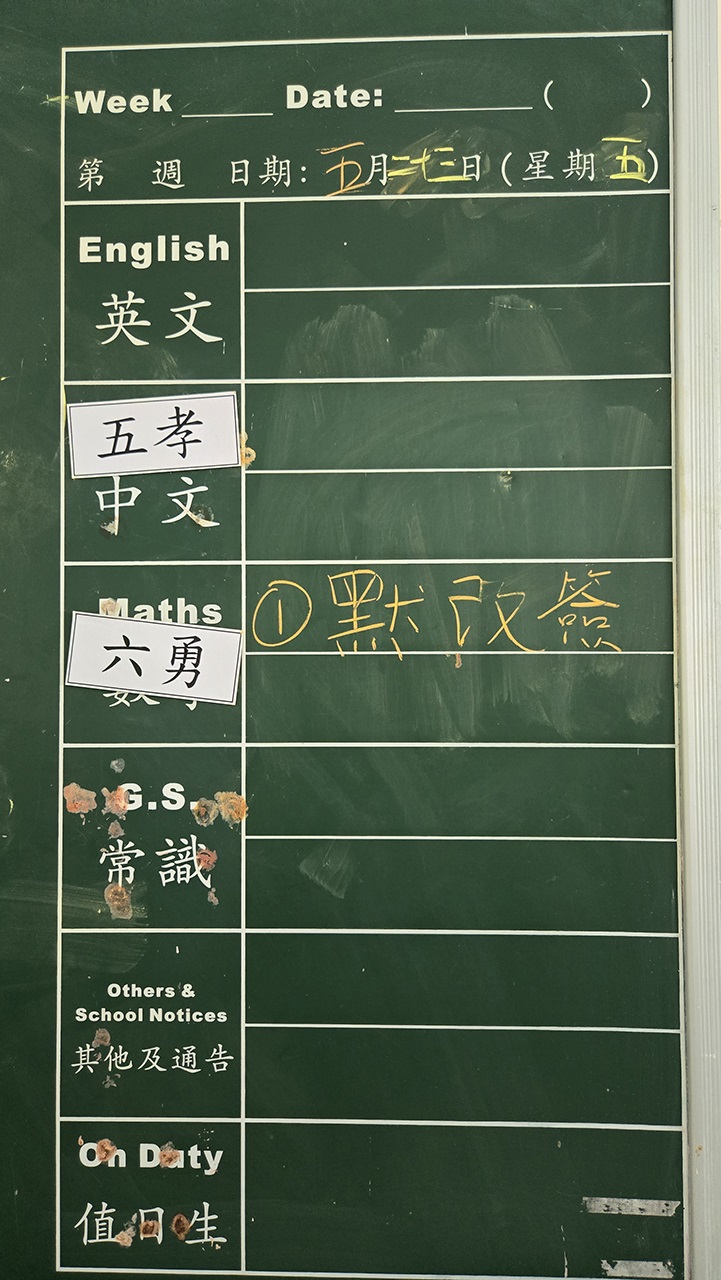 Week ______ Date: _________ (      )
第 週 日期: 五月二十三日 (星期五)
English
英文
五孝
中文
Maths
① 默改簽
六勇
G.S.
常識
Others &
School Notices
其他及通告
On Duty
值日生